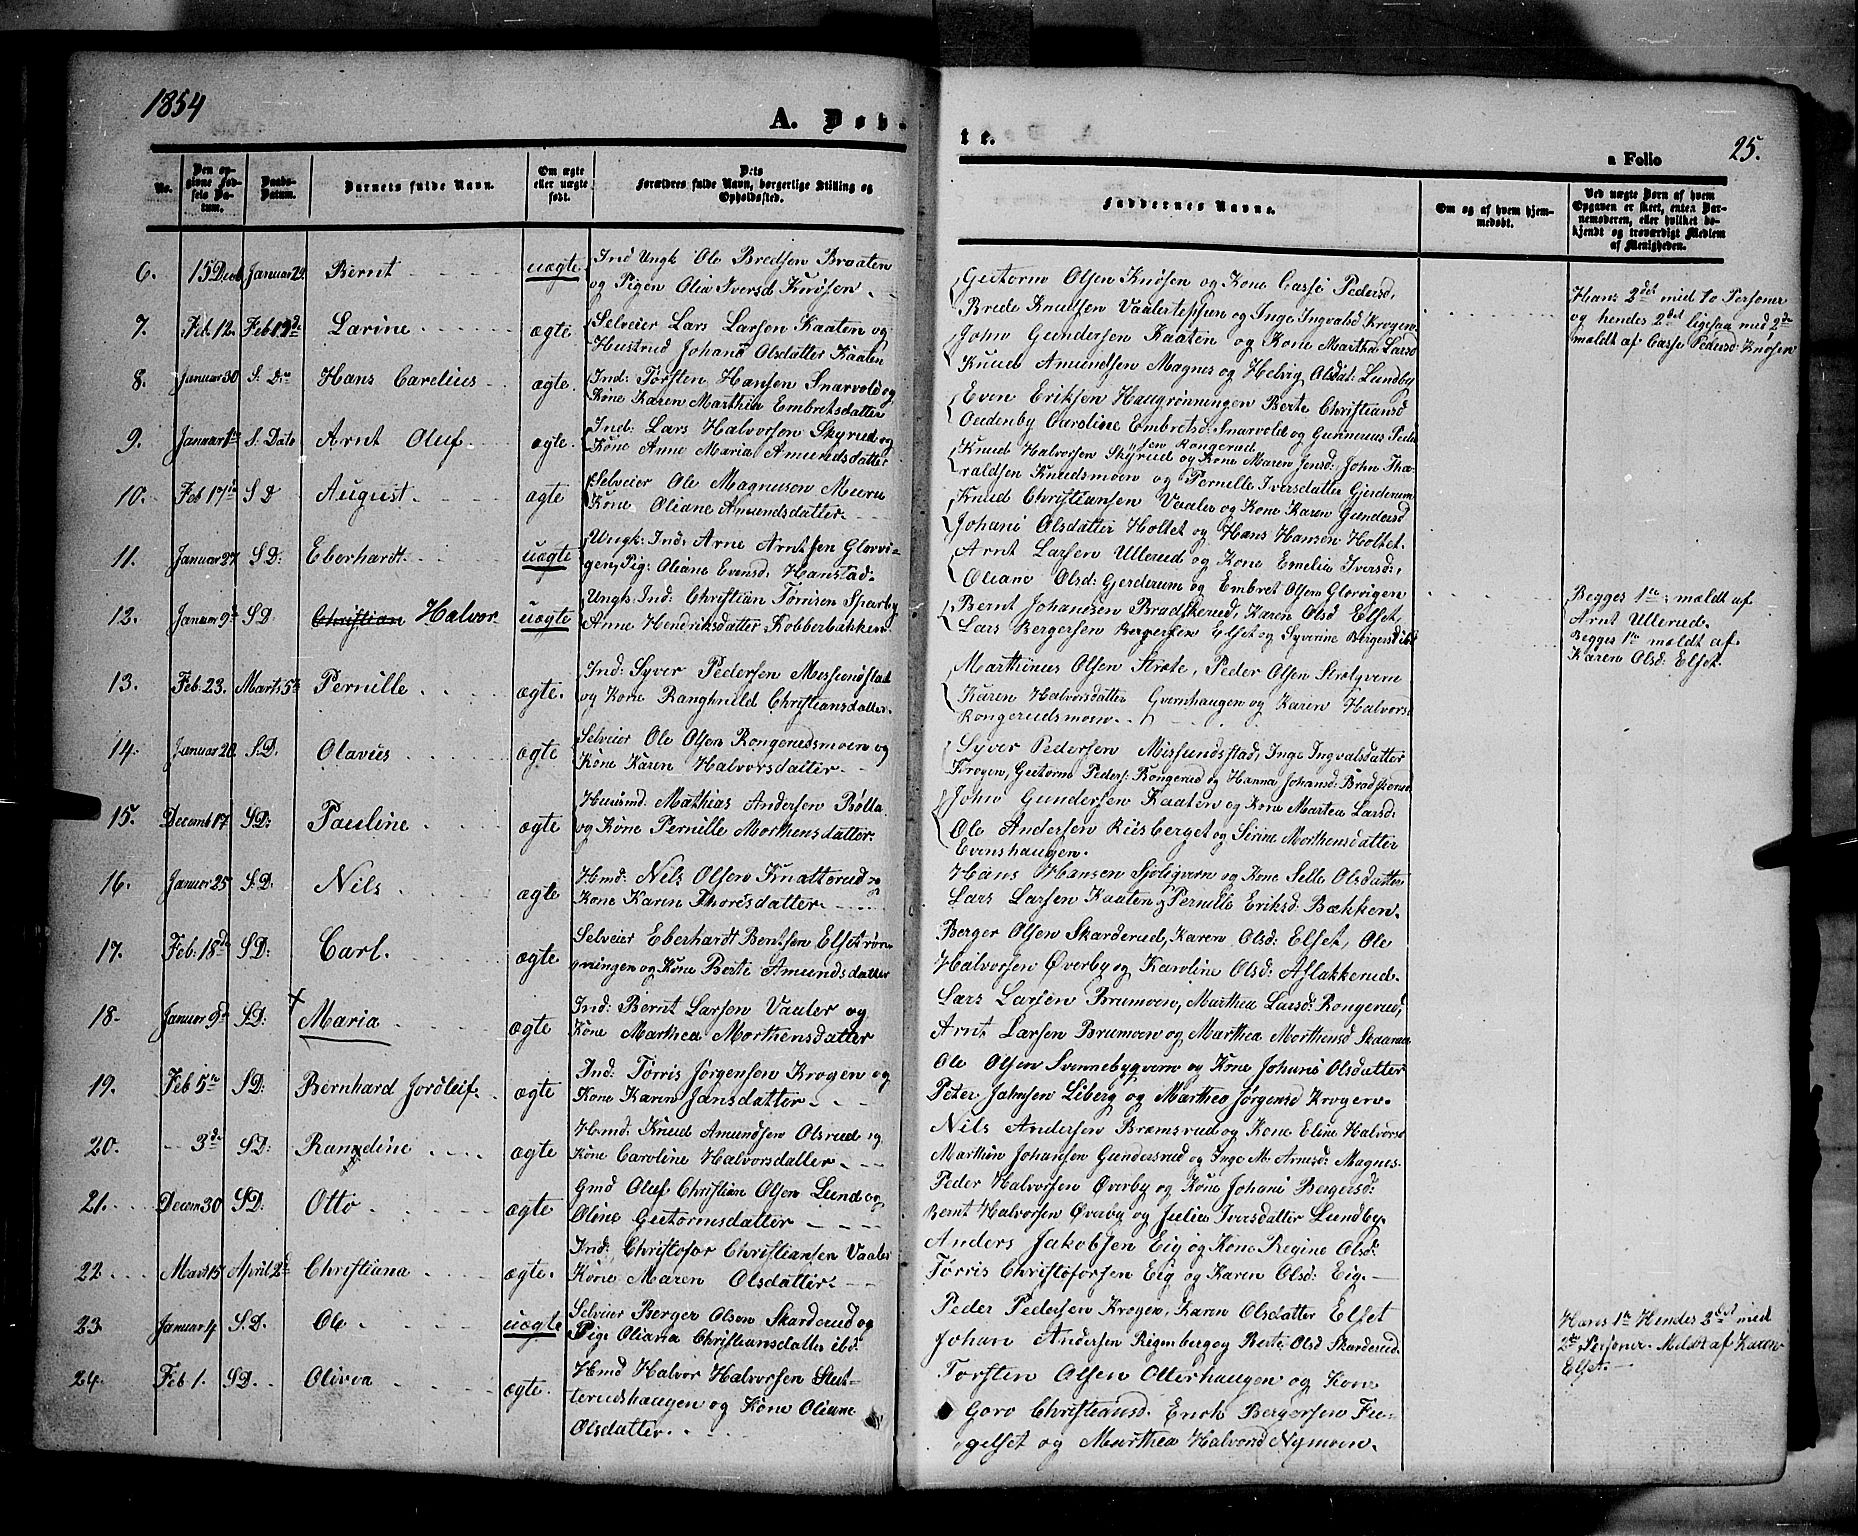 1854
A. Døb-
No.
Den op-
givne Fød-
sels Da-
tum.
Daabs-
Datum.
Barnets fulde Navn.
Om ægte
eller uægte
født.
D:ts
Forældres fulde Navn, borgerlige Stilling og
Opholdssted.
6. 15 Decb Januar 24 Bernt uægte Ind Ungk Ole Bredsen Braaten
og Pigen Olia Iversd Knøsen
7. Feb 12 Feb 19de Larine ægte Selveier Lars Larsen Kaaten og
Hustrud Johane Olsdatter Kaaten
8. Januar 30 S. D. Hans Carelius ægte Ind: Torsten Hansen Snarvold og
Kone Karen Marthia Embretsdatter
9. Januar S. Dato Arnt Oluf ægte. Ind: Lars Halvorsen Skyrud og
Kone Anne Maria Amundsdatter
10. Feb 17de S D August ægte Selveier Ole Magnuson Moern
Kone Oliane Amundsdatter.
11. Januar 27 S D: Eberhardt uægte Ungk: Ind: Arne Arntsen Glorvi-
gen, Pig: Oliane Evensd. Hanstad.
12. Januar 9de S D Christian Halvor uægte Ungk: Ind: Christian Tørrisen Sparby
Anne Hendriksdatter Kobberbækken
13. Feb. 23. Marts 5te Pernille ægte. Ind: Syver Pedersen Messenøstad
og Kone Ranghnild Christiansdatter.
14. Januar 28 S D. Olavus ægte Selveier Ole Olsen Rongerudsmoen og
Kone Karen Halvorsdatter
15. Decemb 17 S D: Pauline ægte Huusmd. Mathias Andersen Bølla
og Kone Pernille Morthensdatter.
16. Januar 25 S. D. Nils ægte Hmd: Nils Olsen Knatterud og
Kone Karen Thorisdatter.
17. Feb: 18de S D: Carl. ægte Selveier Eberhardt Berntsen Elsetrøn-
gningen og Kone Berte Amundsdatter
18. Januar 9de S D: Maria ægte Ind: Bernt Larsen Vaaler og
Kone Marthea Morthensdatter
19. Feb 5te S D: Bernhard Jordleif. ægte Ind: Tørris Jørgensen Krogen og
Kone Karen Jansdatter.
20. - 3de S D: Randine ægte Hmd: Knud Amundsen Olsrud og
Kone Caroline Halvorsdatter
21. Decem 30 S D: Otto ægte Gmd Oluf Christian Olsen Lund og
Oline Guttormsdatter
22 Mart 15 April 2de Christiana ægte. Ind: Christofor Christiansen Vaaler
Kone Maren Olsdatter.
23. Januar 4 S. D. Ole uægte Selveier Berger Olsen Skarderud og
Pig: Oliana Christiansdatter ibd:
24. Feb 1. S D. Olivia ægte. Hmd Halvor Halvorsen Slet-
terudshaugen og Kone Oliane
Olsdatter.
te.
a Folio 25.
Faddernes Navne.
Om og af hvem hjem-
medøbt.
Ved uægte Børn af hvem
Opgaven er skeet, enten Bar-
nemoderen, eller hvilket be-
kjendt og troværdigt Medlem
af Menigheden.
Guttorm Olsen Knøsen og Kone Casse Pedersd,
Brede Knudsen Vaalerteppen og Inge Ingvalsd Krogen
John Gundersen Kaaten og Kone Martha Larsd
Knud Amundsen Magnes og Helvig Olsdat: Lundby
Even Eriksen Haugrønningen Berte Christiansd
Oudenby Caroline Embretsd: Snarvold og Gunnerius Peder
sen Rongerud
Knud Halvorsen Skyrud og Kone Maren Jensd: John Tha-
raldsen Knudsmoen og Pernille Iversdatter Gjerderum
Knud Christiansen Vaaler og Kone Karen Gundersd
Johane Olsdatter Holtet og Hans Hansen Holtet.
Arnt Larsen Ullerud og Kone Emelia Iversd:,
Oliane Olsd: Gjerderum og Embret Olsen Glorvigen
Bernt Johannesen Bradskerud, Karen Olsd Elset,
Lars Bergersen Bergersen Elset og Syverine Bergersd ibd
Marthinus Olsen Stræte, Peder Olsen Strætqvern
Karen Halvorsdatter Gvernhaugen og Karen Halvorsd
Rongerudsmoen.
Syver Pedersen Missundstad, Inge Ingvalsdatter
Krogen, Guttorm Peders: Rongerud og Hanna Johansd: Bradskerud
John Gundersen Kaaten og Kone Martea Larsd:
Ole Andersen Riisberget og Sirine Morthensdatter
Evenshaugen.
Hans Hansen Sjøliqvern og Kone Selle Olsdatter
Lars Larsen Kaaten og Pernille Eriksd: Bækken.
Berger Olsen Skarderud, Karen Olsd: Elset, Ole
Halvorsen Øverby og Karoline Olsd: Aflakkerud.
Lars Larsen Brumoen, Marthea Larsd: Rongerud,
Arnt Larsen Brumoen og Marthea Morthensd Skaaraa
Ole Olsen Svennebyqvern og Kone Johane Olsdatter
Peter Jahnsen Liberg og Marthea Jørgensd Krogen.
Nils Andersen Bræmsrud og Kone Eline Halvorsd
Marthin Johansen Gundersrud og Inge M. Arnesd: Magnes.
Peder Halvorsen Øverby og Kone Johane Bergersd:
Bernt Halvorsen Øverby og Julia Iversdatter Lundby.
Anders Jakobsen Eig og Kone Regine Olsd:
Tørris Christoforsen Eig og Karen Olsd: Eig.
Peder Pedersen Krogen, Karen Olsdatter Elset
Johan Andersen Rigenberg og Berte Olsd Skarderud.
Torsten Olsen Otterhaugen og Kone
Goro Christiansd. Erick Bergersen Fu-
gelset og Marthea Halvorsd Nymoen.
Hans 2det med to Personer
og hendes 2det ligesaa med 2de
meldt af Casse Pedersd: Knøsen
Begges 1te: meldt af
Arnt Ullerud.
Begges 1te meldt af
Karen Olsd: Elset.
Hans 1te Hendes 2det med
2de Personer. Meldt af Karen
Elset.